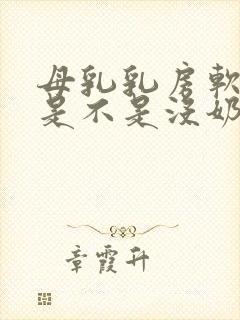 母乳乳房軟
是不是沒奶
章霞升